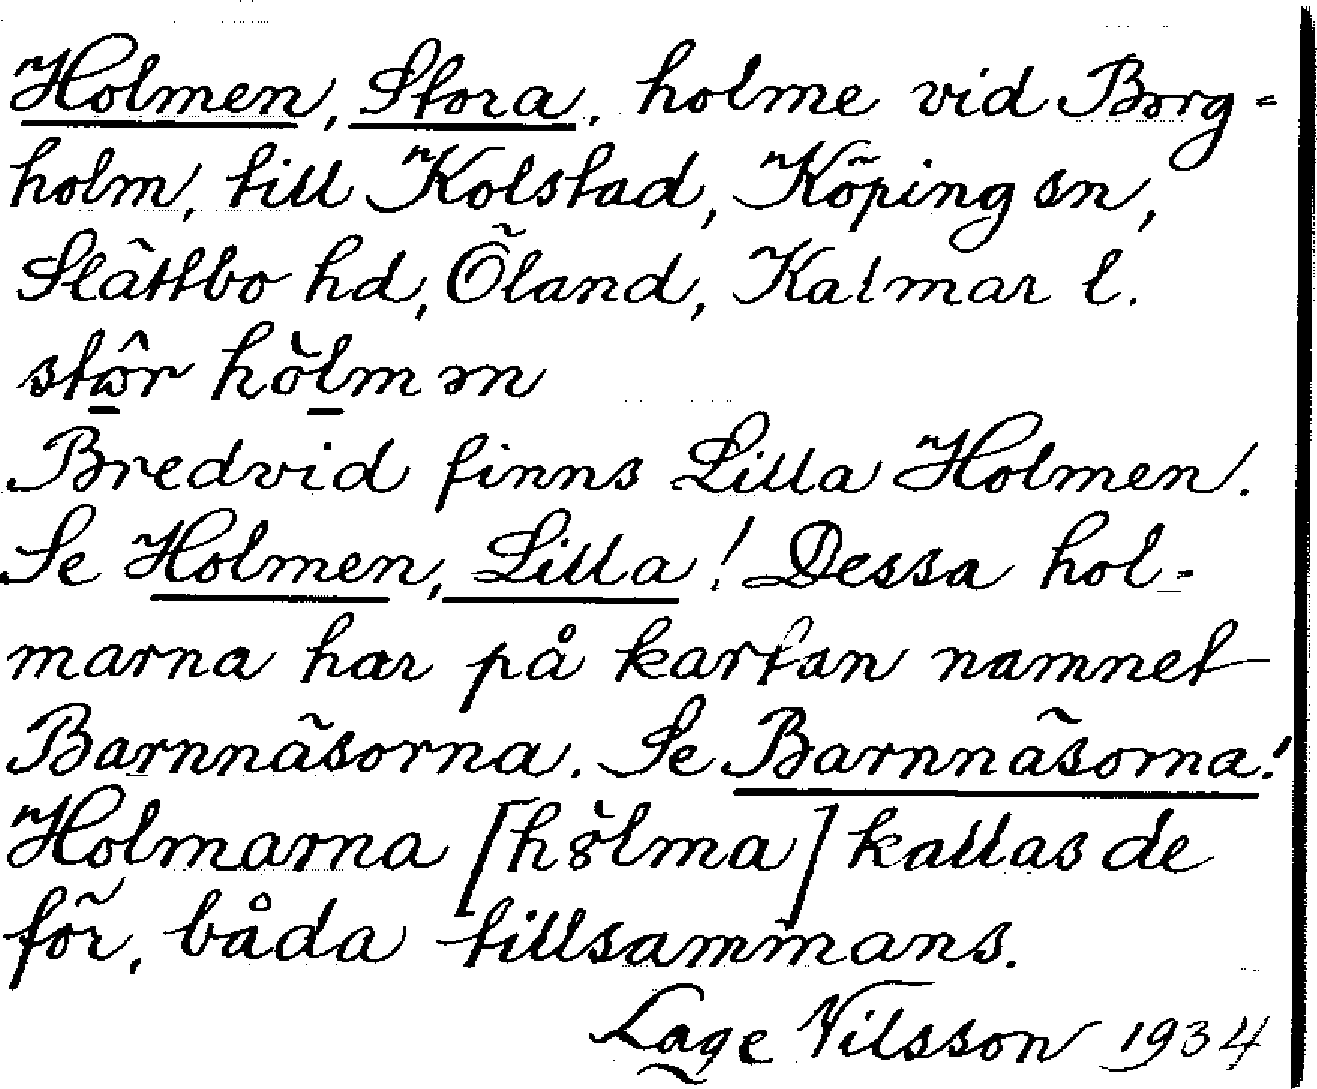 Holmen, Stora. holme vid Borg-
holm, till Kolstad, Köping sn,
Slättbo hd, Öland, Kalmar l.
stôr hòlmən
Bredvid finns Lilla Holmen.
Se Holmen, Lilla! Dessa hol-
marna har på kartan namnet
Barnnäsorna. Se Barnnäsorna!
Holmarna [hòlma] kallas de
för, båda tillsammans.
Lage Nilsson 1934